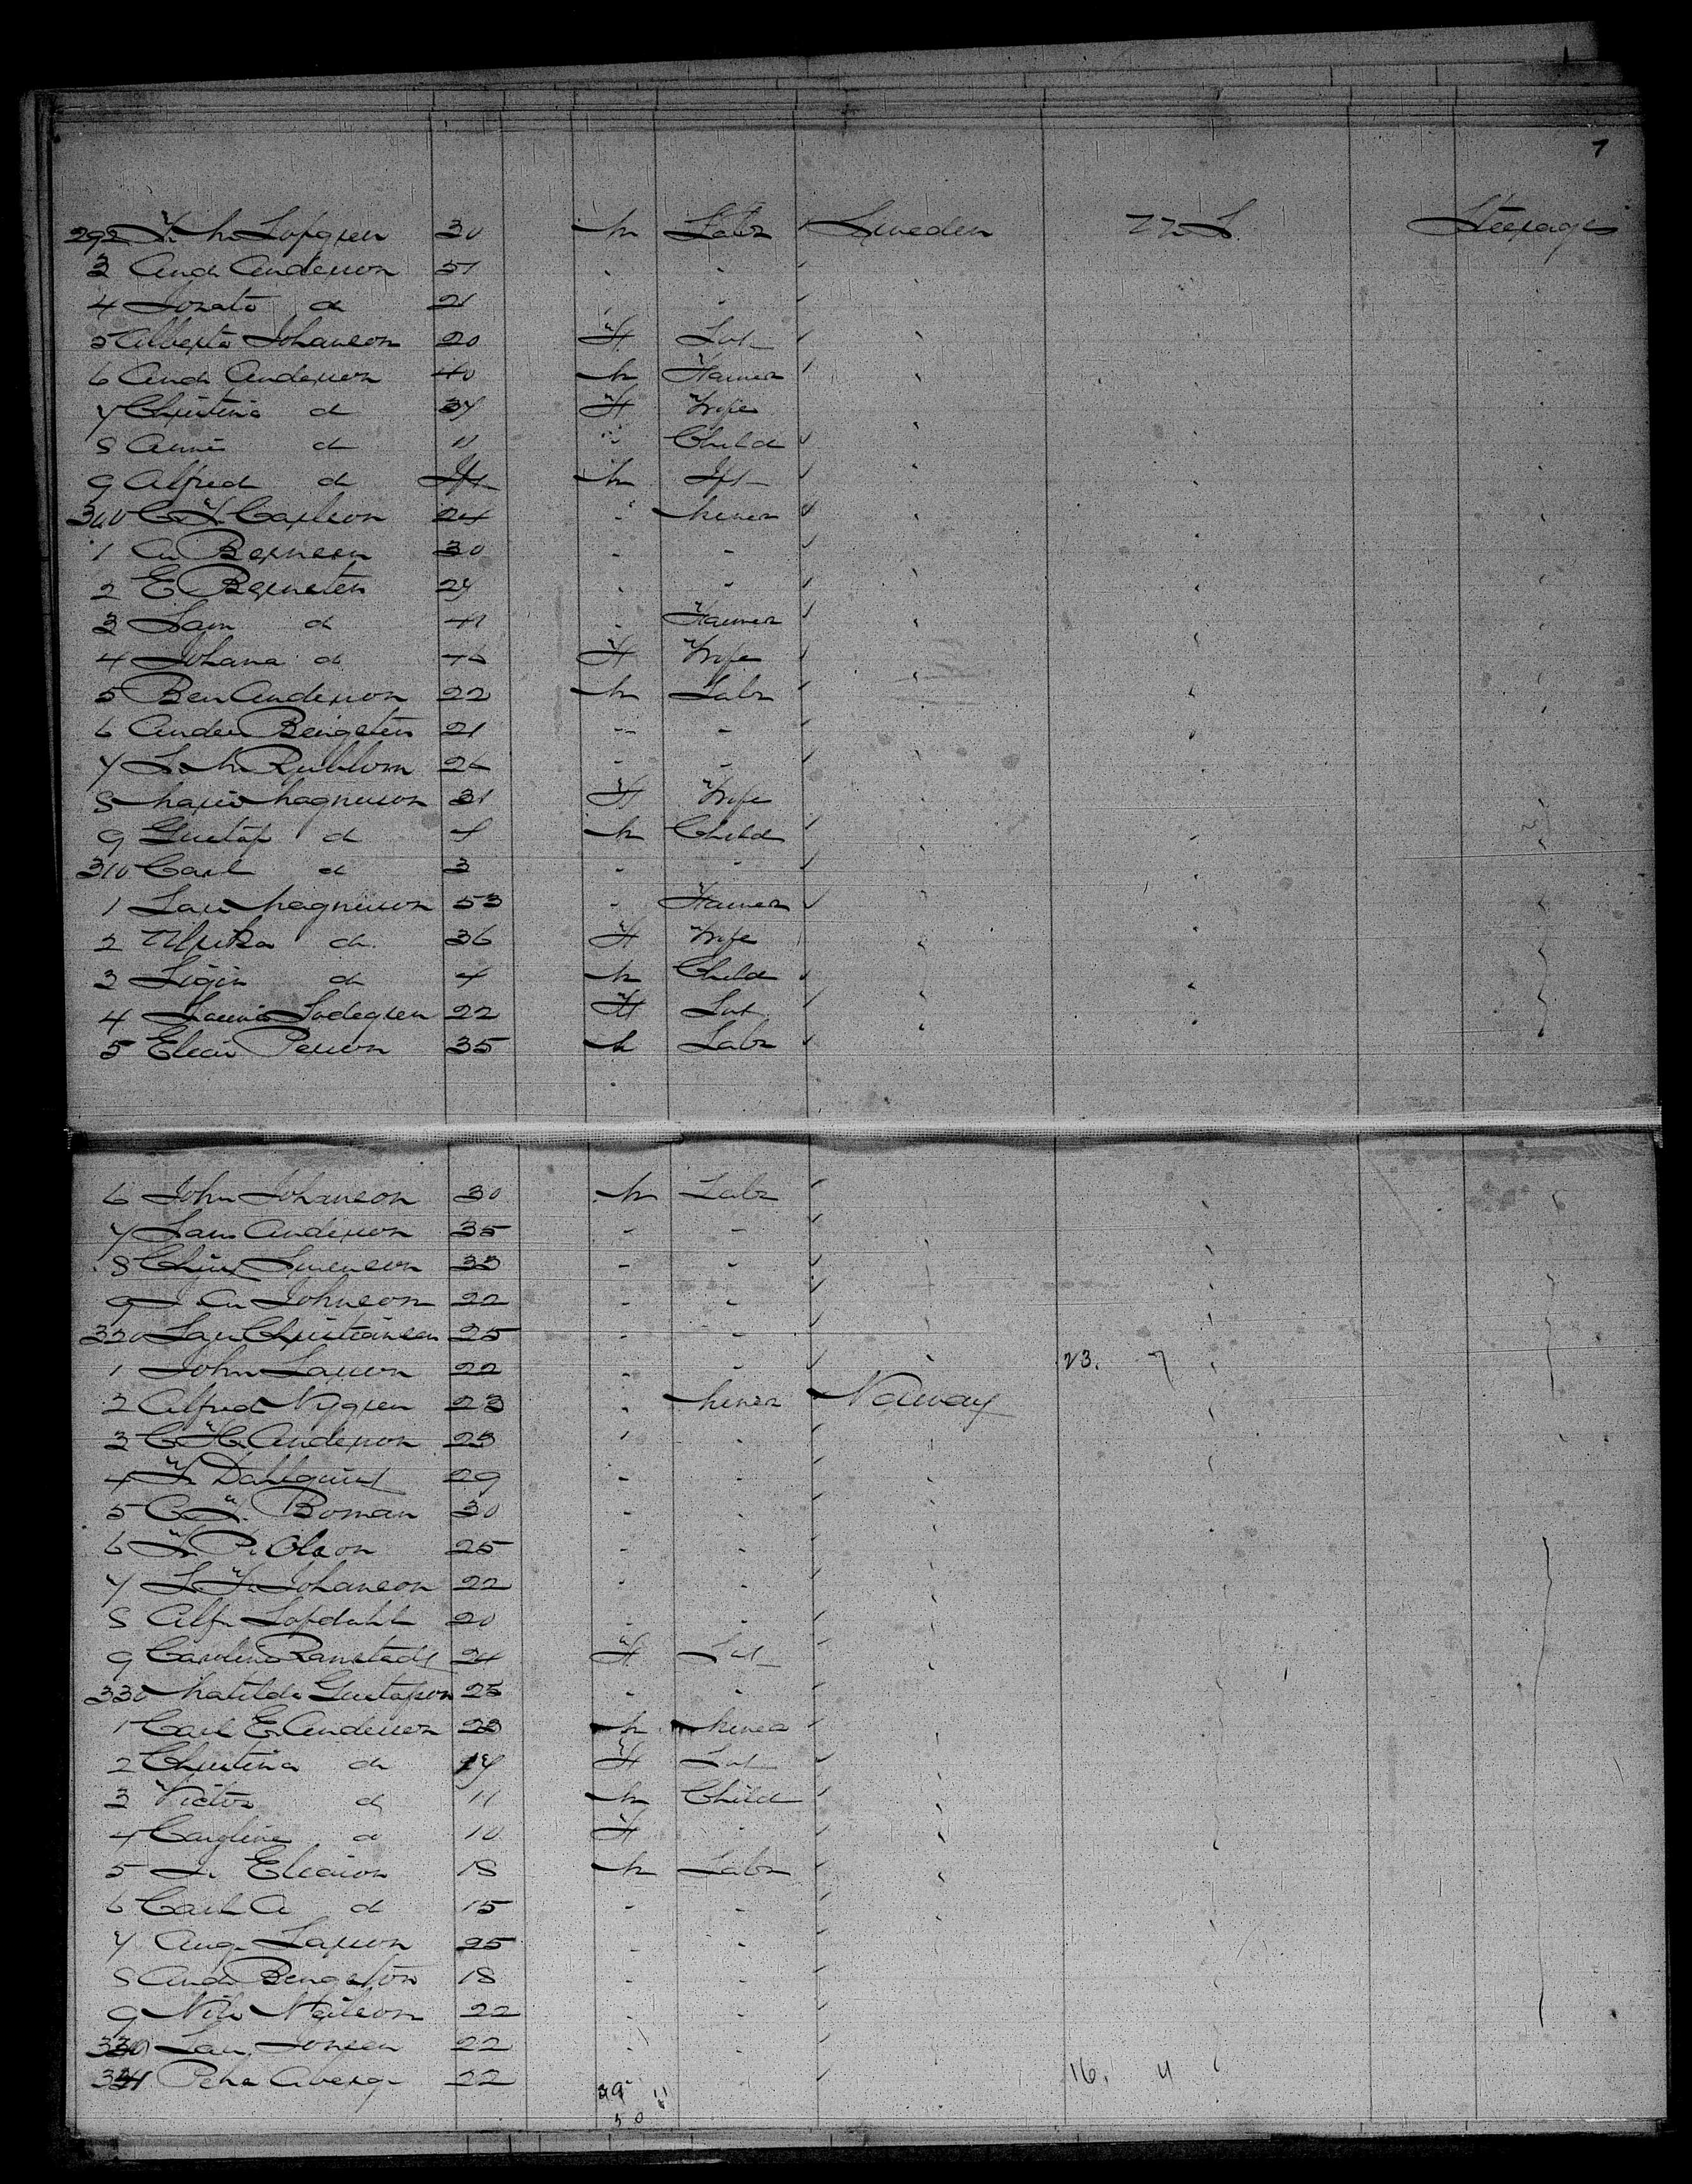 7
292 F. M. Lofgren 30 M Labr Sweden U.S. Steerage
3 And. Anderson 51 " "
4 do 21 " "
5 Alberta Johanson 20 F
6 And. Anderson 40 M Farmer
7 Christina do 37 F Wife
8 Anna do 11 " Child
9 Alfred do Inft M Inft
300 C F Carlson 24 " Miner
1 Bernsen 30 " "
2 E Bernsten 27 " "
3 do 41 " Farmer
4 Johana do 46 F Wife
5 Ben Anderson 22 M Labr
6 Ander Bengsten 21 " "
7 L. M. 26 " "
8 Maria Magnuson 31 F Wife
9 Gustaf do 4 M Child
310 Carl do 3 " "
1 Lars Magnuson 53 " Farmer
2 Ulrika do 36 F Wife
3 do 4 M Child
4 Sodegren 22 F
5 Elias Person 35 M Labr
6 John Johanson 30 M Labr
7 Lars Anderson 35 " "
8 Christ Swenson 33 " "
9 Johnson 22 " "
320 Lars Christiansen 25 " "
1 John Larson 22 " " 23. 7
2 Alfred Nygren 23 " Miner Norway
3 C H Anderson 23 " "
4 F. Dahlquist 29 " "
5 C F. Boman 30 " "
6 F. P. Olson 25 " "
7 L. F. Johanson 22 " "
8 Alf. Lofdahl 20 " "
9 Carolina Ranstadt 24 F
330 Matilda Gustafson 25 " "
1 Carl E. Anderson 23 M Miner
2 Christina do 17 F
3 Victor do 11 M Child
4 Caroline do 10 F "
5 Eliason 18 M Labr
6 Carl A do 15 " "
7 Aug. Larson 25 " "
8 And. Bengston 18 " "
9 Nils Neilson 22 " "
Lars Jonsen 22 " "
Pehr Aberg 22 " 16. 4
39 11
50